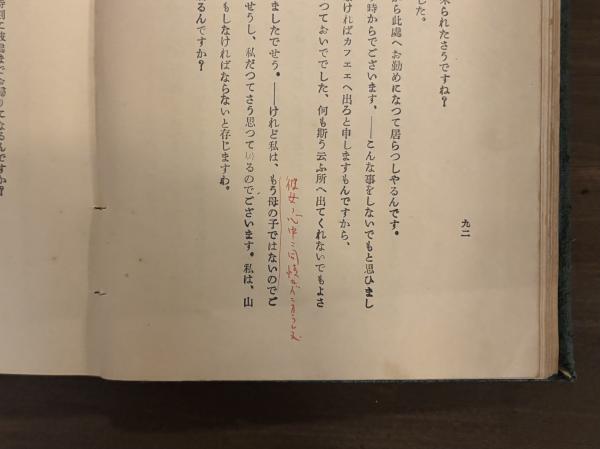 来られたさうですね?
した。
から此處へお勤めになつて居らつしやるんです。
時からでございます、――こんな事をしないでもと思ひまし
ければカフェエへ出ろと申しますもんですから、
つておいででした、何も斯う云ふ所へ出てくれないでもよさ
ましたでせう。――けれど私は、もう母の子ではないのでご
彼女ノ心中ニ同情
せうし、私だつてさう思つてゐるのでございます。私は、山
もしなければならないと存じますわ。
るんですか?
時刻に彼處までお歸りになるんですか?
九二